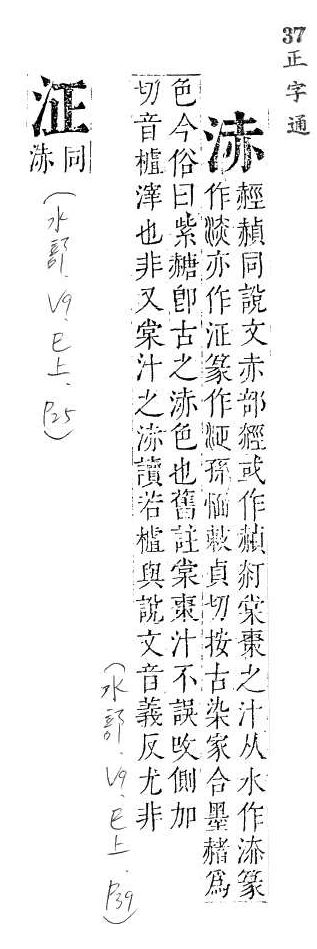 37 正字通
浾
䞓赬同說文赤部䞓或作赬𧹛棠棗之汁从水作浾篆
作亦作泟篆作孫愐敕貞切按古染家合墨赭爲
色今俗曰紫糖卽古之浾色也舊註棠棗汁不誤攺側加
切音樝滓也非又棠汁之浾讀若樝與說文音義反尤非
(水部、V9、E上、P39)
泟
同浾
(水部、V9、E上、P25)